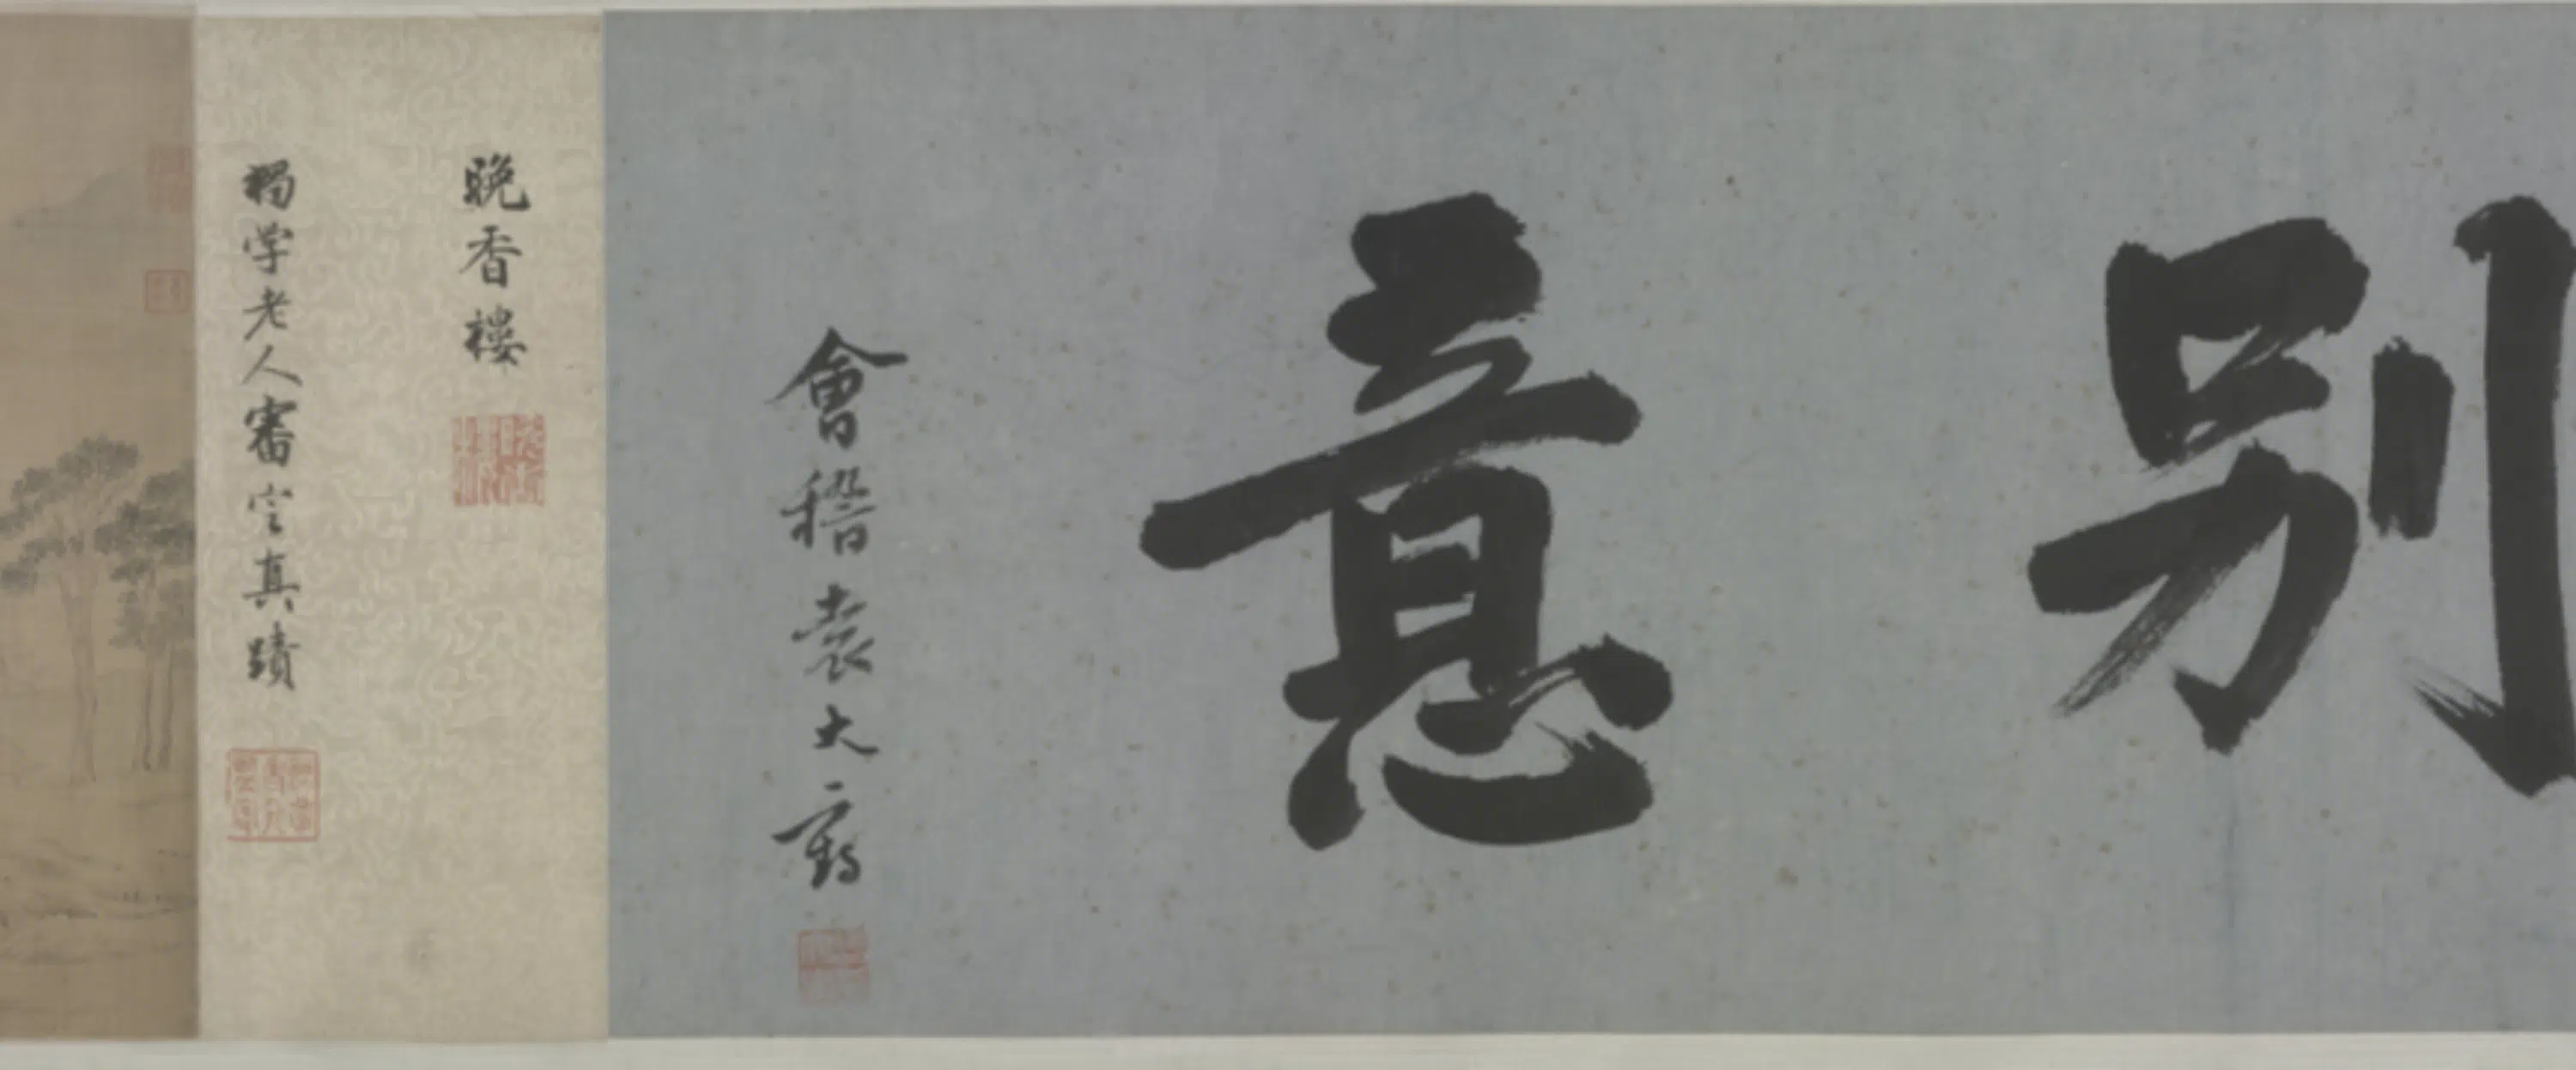 別意
會稽袁大𩁹
晚香樓
獨学老人審定真蹟